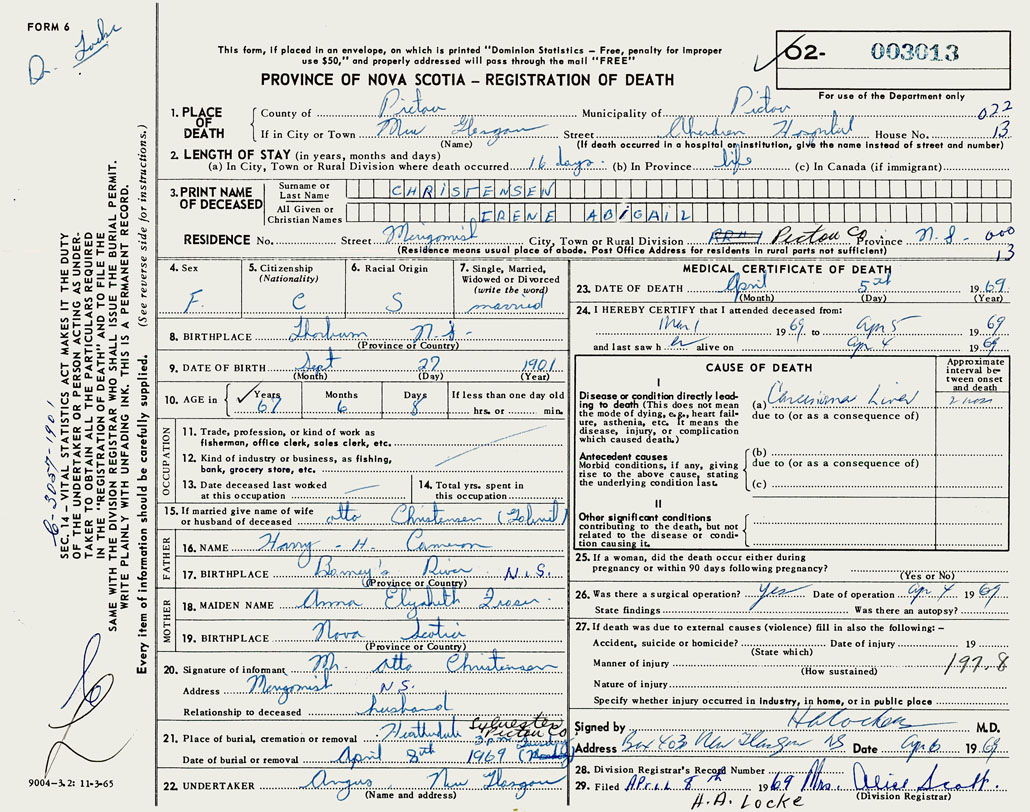 FORM 6
Dr. Locke
This form, if placed in an envelope, on which is printed "Dominion Statistics – Free, penalty for improper
use $50," and properly addressed will pass through the mail "FREE"
PROVINCE OF NOVA SCOTIA – REGISTRATION OF DEATH
02- 003013
For use of the Department only
1. PLACE OF DEATH
County of Pictou Municipality of Pictou 022
If in City or Town New Glasgow Street Aberdeen Hospital House No. 13
(Name) (If death occurred in a hospital or institution, give the name instead of street and number)
2. LENGTH OF STAY (in years, months and days)
(a) In City, Town or Rural Division where death occurred 16 days (b) In Province life (c) In Canada (if immigrant)
3. PRINT NAME OF DECEASED
Surname or Last Name CHRISTENSEN
All Given or Christian Names IRENE ABIGAIL
RESIDENCE No. Street Merigomish City, Town or Rural Division RR#1 Pictou Co Province N.S. 000
(Residence means usual place of abode. Post Office Address for residents in rural parts not sufficient) 13
4. Sex F.
5. Citizenship (Nationality) C
6. Racial Origin S
7. Single, Married, Widowed or Divorced (write the word) married
8. BIRTHPLACE Thorburn N.S.
(Province or Country)
9. DATE OF BIRTH Sept 27 1901
(Month) (Day) (Year)
10. AGE in Years 67 Months 6 Days 8 If less than one day old hrs. or min.
OCCUPATION
11. Trade, profession, or kind of work as fisherman, office clerk, sales clerk, etc.
12. Kind of industry or business, as fishing, bank, grocery store, etc.
13. Date deceased last worked at this occupation
14. Total yrs. spent in this occupation
15. If married give name of wife or husband of deceased Otto Christensen
FATHER
16. NAME Harry H. Cameron
17. BIRTHPLACE Barney's River N.S.
(Province or Country)
MOTHER
18. MAIDEN NAME Anna Elizabeth Fraser
19. BIRTHPLACE Nova Scotia
(Province or Country)
20. Signature of informant Mr. Otto Christensen
Address Merigomish N.S.
Relationship to deceased husband
21. Place of burial, cremation or removal Heatherdale Sylvester Pictou Co
Date of burial or removal April 8th 1969
22. UNDERTAKER Angus New Glasgow
(Name and address)
MEDICAL CERTIFICATE OF DEATH
23. DATE OF DEATH April 5th 1969
(Month) (Day) (Year)
24. I HEREBY CERTIFY that I attended deceased from:
Mar 1 1969 to Apr 5 1969
and last saw her alive on Apr 4 1969
CAUSE OF DEATH
Approximate interval between onset and death
I
Disease or condition directly leading to death (This does not mean the mode of dying, e.g., heart failure, asthenia, etc. It means the disease, injury, or complication which caused death.)
(a) Carcinoma Liver 2 mos
due to (or as a consequence of)
Antecedent causes
Morbid conditions, if any, giving rise to the above cause, stating the underlying condition last.
(b)
due to (or as a consequence of)
(c)
II
Other significant conditions contributing to the death, but not related to the disease or condition causing it.
25. If a woman, did the death occur either during pregnancy or within 90 days following pregnancy?
(Yes or No)
26. Was there a surgical operation? Yes Date of operation Apr 4 1969
State findings Was there an autopsy?
27. If death was due to external causes (violence) fill in also the following: –
Accident, suicide or homicide? Date of injury 19
(State which)
Manner of injury 197.8
(How sustained)
Nature of injury
Specify whether injury occurred in industry, in home, or in public place
Signed by HA Locke M.D.
Address Box 403 New Glasgow NS Date Apr 6 1969
28. Division Registrar's Record Number
29. Filed April 8th 1969 Mrs. Alice Scott
(Division Registrar)
H.A. Locke
SEC. 14 – VITAL STATISTICS ACT MAKES IT THE DUTY
OF THE UNDERTAKER OR PERSON ACTING AS UNDER-
TAKER TO OBTAIN ALL THE PARTICULARS REQUIRED
IN THE "REGISTRATION OF DEATH" AND TO FILE THE
SAME WITH THE DIVISION REGISTRAR WHO SHALL ISSUE THE BURIAL PERMIT.
WRITE PLAINLY WITH UNFADING INK. THIS IS A PERMANENT RECORD.
Every item of information should be carefully supplied. (See reverse side for instructions.)
9004-3.2: 11-3-65